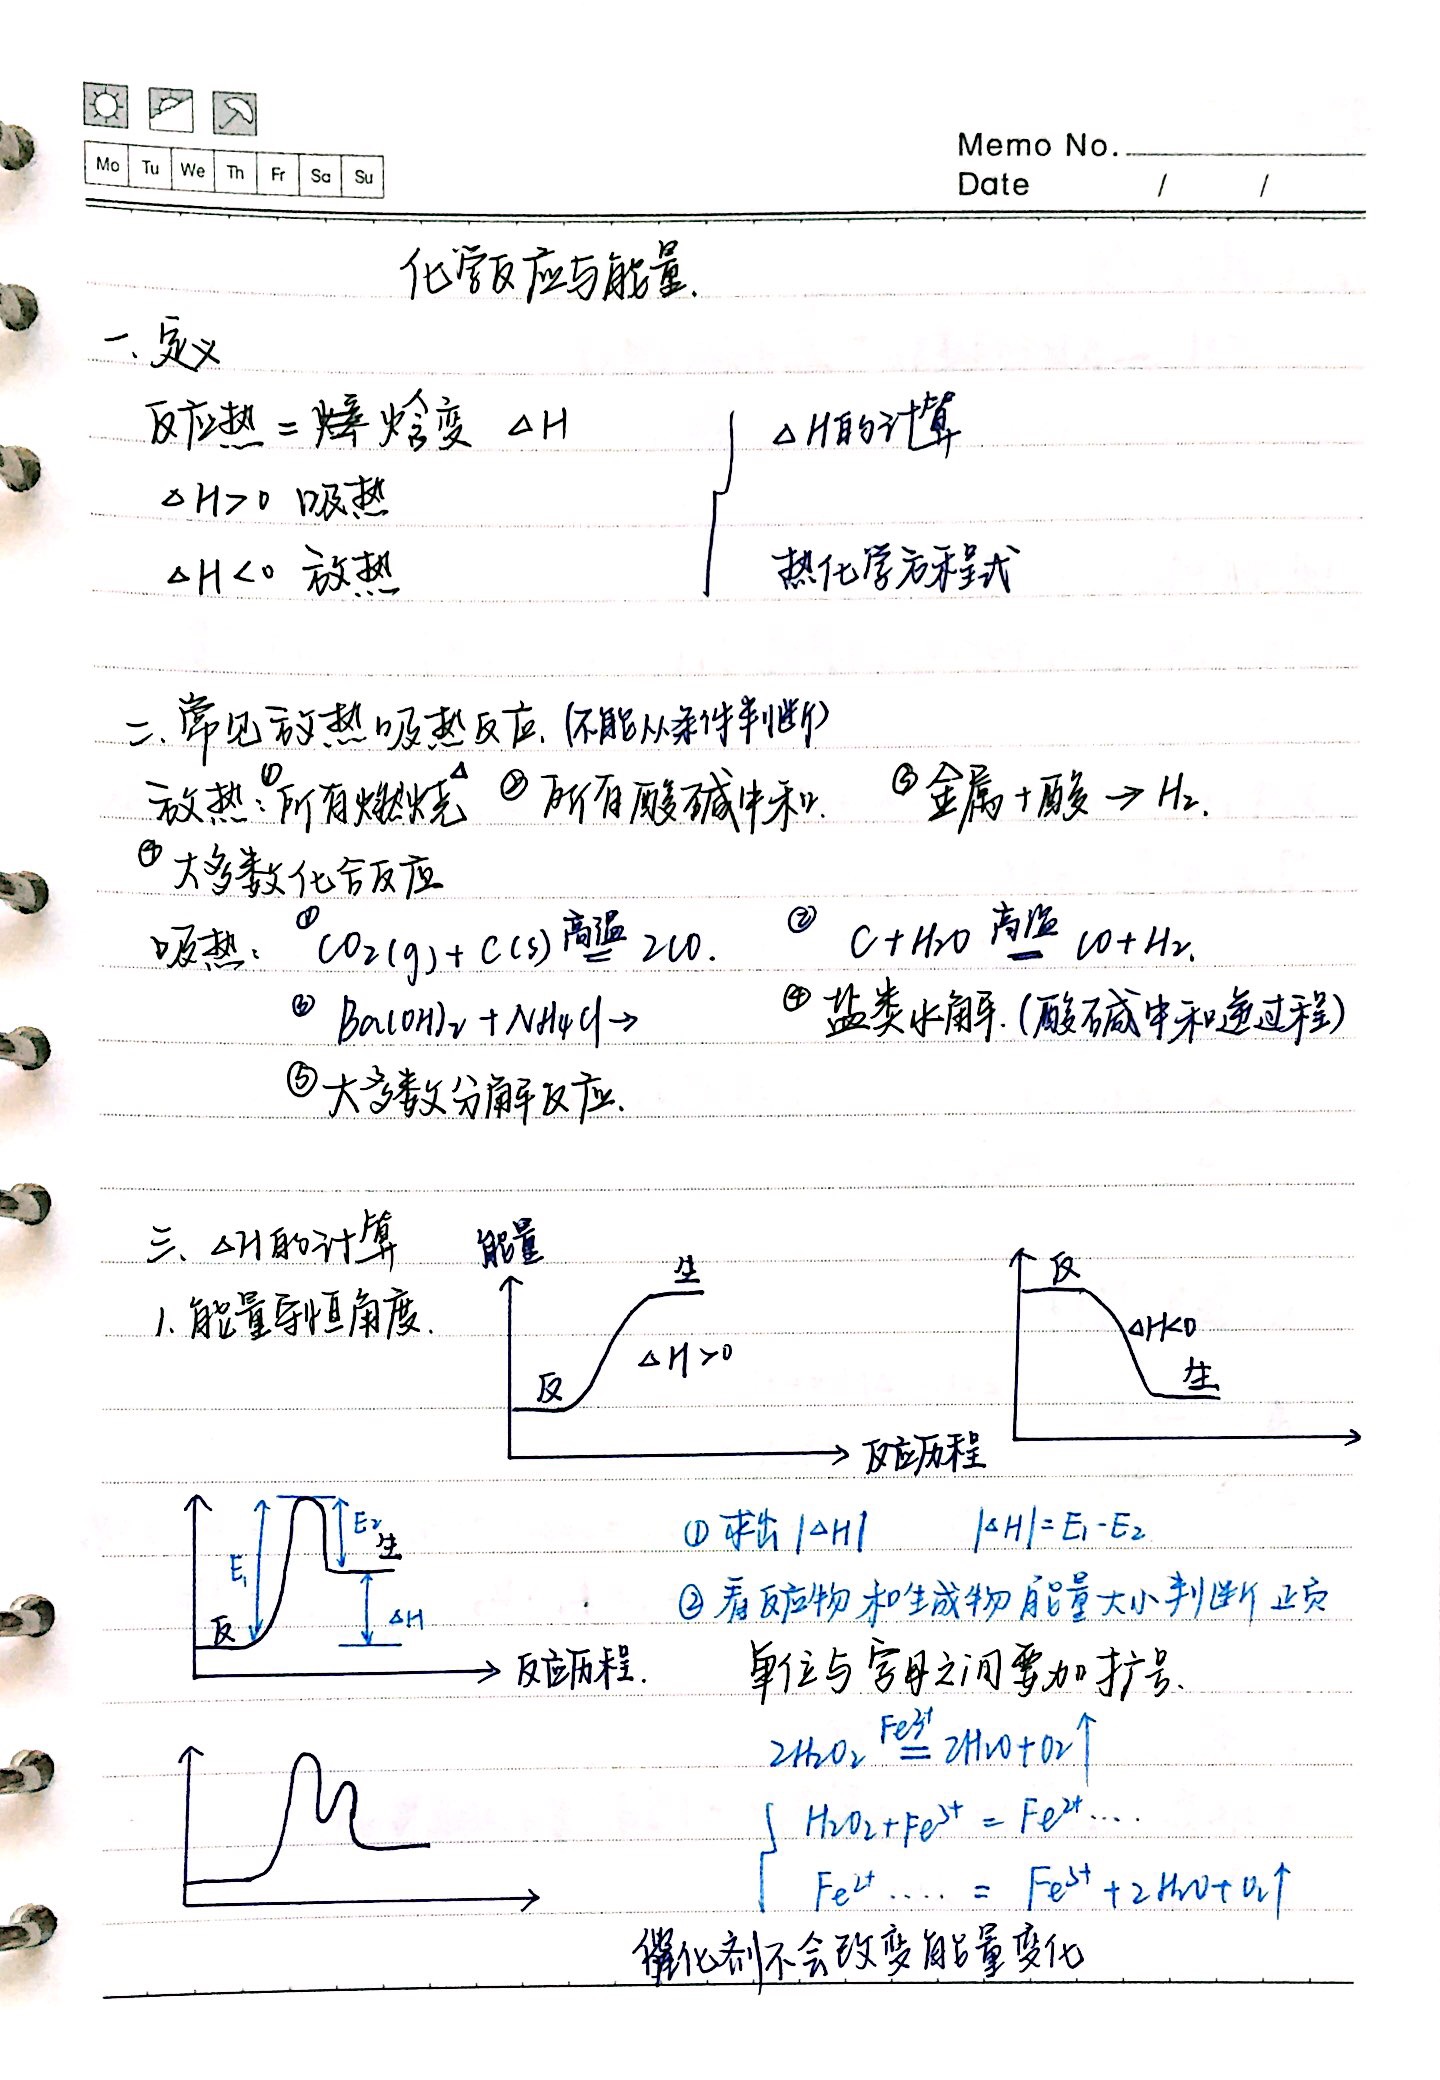 Mo Tu We Th Fr Sa Su
Memo No.
Date / /
化学反应与能量.
一、定义
反应热 = 焓变 △H
△H的计算
△H>0 吸热
△H<0 放热
热化学方程式
二、常见放热吸热反应.(不能从条件判断)
放热:①所有燃烧△ ②所有酸碱中和. ③金属+酸→H₂.
④大多数化合反应
吸热: ①CO₂(g)+C(s) 高温= 2CO. ② C+H₂O 高温= CO+H₂.
③ Ba(OH)₂+NH₄Cl→ ④盐类水解.(酸碱中和逆过程)
⑤大多数分解反应.
三、△H的计算
1.能量守恒角度.
能量
生
△H>0
反
反应历程
反
△H<0
生
E₁
E₂
生
△H
反
反应历程.
① 求出|△H| |△H|=E₁-E₂
② 看反应物和生成物能量大小判断正负
单位与字母之间要加扩号.
2H₂O₂ Fe³⁺= 2H₂O+O₂↑
H₂O₂+Fe³⁺ = Fe²⁺....
Fe²⁺ .... = Fe³⁺+2H₂O+O₂↑
催化剂不会改变能量变化